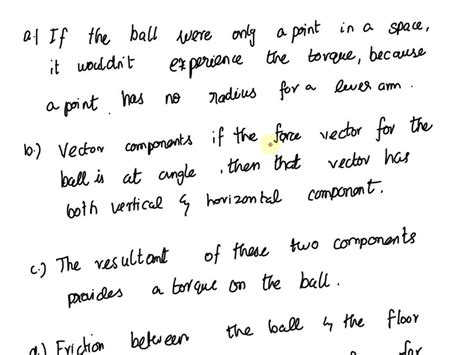 a) If the ball were only a point in a space,
it wouldn't experience the torque, because
a point has no radius for a lever arm.
b.) Vector components if the force vector for the
ball is at angle, then that vector has
both vertical & horizontal component.
c.) The resultant of these two components
provides a torque on the ball.
d) Friction between the ball & the floor
for